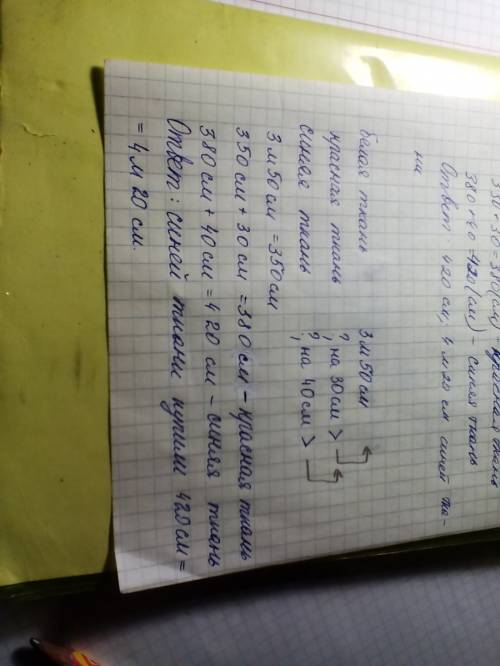 350+30=380(см) красная ткань
380+40=420(см) - синяя ткань
Ответ: 420 см, 4 м 20 см синей тка-
ни
белая ткань 3 м 50 см
красная ткань ?, на 30 см >
синяя ткань ?, на 40 см >
3 м 50 см = 350 см
350 см + 30 см = 380 см - красная ткань
380 см + 40 см = 420 см - синяя ткань
Ответ: синей ткани купили 420 см =
= 4 м 20 см.